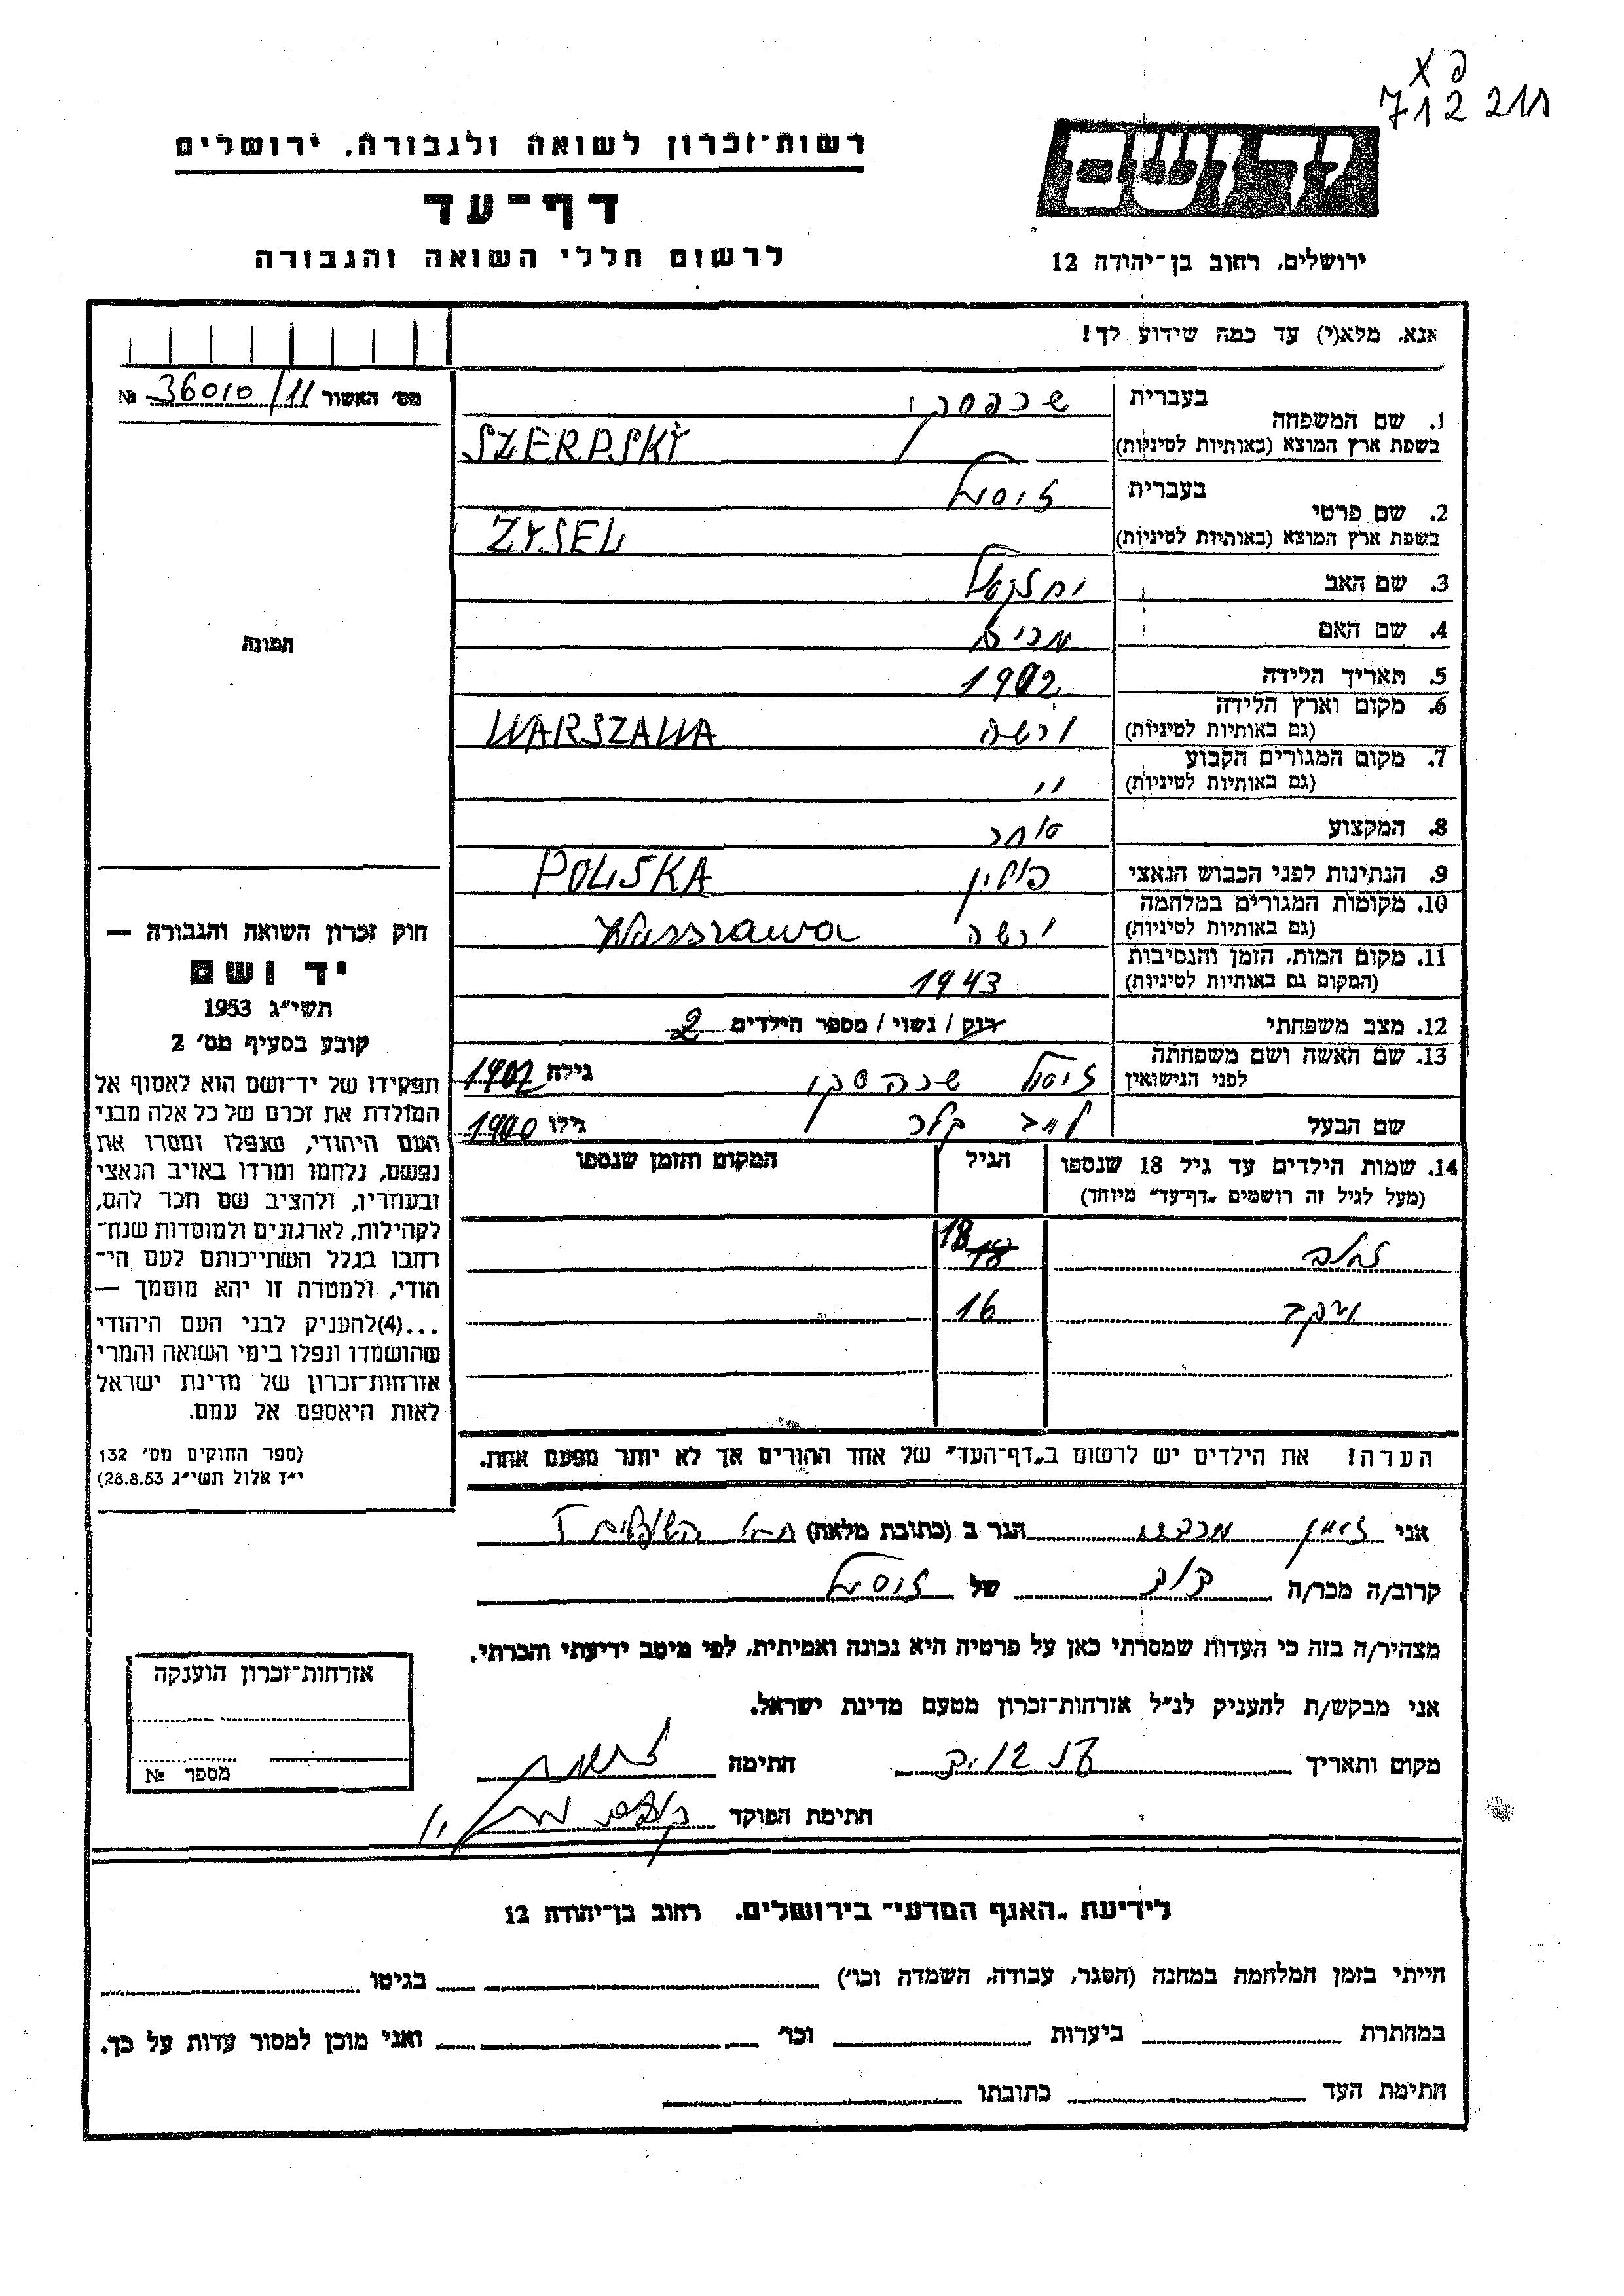 712 211
רשות־זכרון לשואה ולגבורה, ירושלים
ידושם
דף־עד
לרשום חללי השואה והגבורה
ירושלים, רחוב בן־יהודה 12
אנא, מלא(י) עד כמה שידוע לך!
מס׳ האשור 36010/11 №
1. שם המשפחה
בעברית שרפסקי
בשפת ארץ המוצא (באותיות לטיניות) SZERPSKY
2. שם פרטי
בעברית זיסל
בשפת ארץ המוצא (באותיות לטיניות) ZYSEL
3. שם האב יחזקאל
4. שם האם מרים
תמונה
5. תאריך הלידה 1902
6. מקום וארץ הלידה
(גם באותיות לטיניות) ורשה WARSZAWA
7. מקום המגורים הקבוע
(גם באותיות לטיניות) "
8. המקצוע סוחר
9. הנתינות לפני הכבוש הנאצי פולין POLSKA
10. מקומות המגורים במלחמה
(גם באותיות לטיניות) ורשה Warszawa
11. מקום המות, הזמן והנסיבות
(המקום גם באותיות לטיניות) 1943
12. מצב משפחתי רוק / נשוי / מספר הילדים 2
13. שם האשה ושם משפחתה
לפני הנישואין זיסל שרפסקי גילה 1902
שם הבעל גילו 1900
14. שמות הילדים עד גיל 18 שנספו
(מעל לגיל זה רושמים „דף־עד” מיוחד)
הגיל
המקום והזמן שנספו
18 18
יעקב 16
הערה! את הילדים יש לרשום ב„דף־העד” של אחד ההורים אך לא יותר מפעם אחת.
חוק זכרון השואה והגבורה —
יד ושם
תשי״ג 1953
קובע בסעיף מס׳ 2
תפקידו של יד־ושם הוא לאסוף אל
המולדת את זכרם של כל אלה מבני
העם היהודי, שנפלו ומסרו את
נפשם, נלחמו ומרדו באויב הנאצי
ובעוזריו, ולהציב שם וזכר להם,
לקהילות, לארגונים ולמוסדות שנח־
רבו בגלל השתייכותם לעם הי־
הודי, ולמטרה זו יהא מוסמך —
...(4)להעניק לבני העם היהודי
שהושמדו ונפלו בימי השואה והמרי
אזרחות־זכרון של מדינת ישראל
לאות היאספם אל עמם.
(ספר החוקים מס׳ 132
י״ז אלול תשי״ג 28.8.53)
אני זיימן הגר ב (כתובת מלאה)
קרוב/ה מכר/ה קרוב של זיסל
מצהיר/ה בזה כי העדות שמסרתי כאן על פרטיה היא נכונה ואמיתית, לפי מיטב ידיעתי והכרתי.
אני מבקש/ת להעניק לנ״ל אזרחות־זכרון מטעם מדינת ישראל.
מקום ותאריך חתימה
חתימת הפוקד
אזרחות־זכרון הוענקה
מספר №
לידיעת „האגף המדעי” בירושלים, רחוב בן־יהודה 12
הייתי בזמן המלחמה במחנה (הסגר, עבודה, השמדה וכו׳) בגיטו
במחתרת ביערות וכו׳ ואני מוכן למסור עדות על כך.
חתימת העד כתובתו